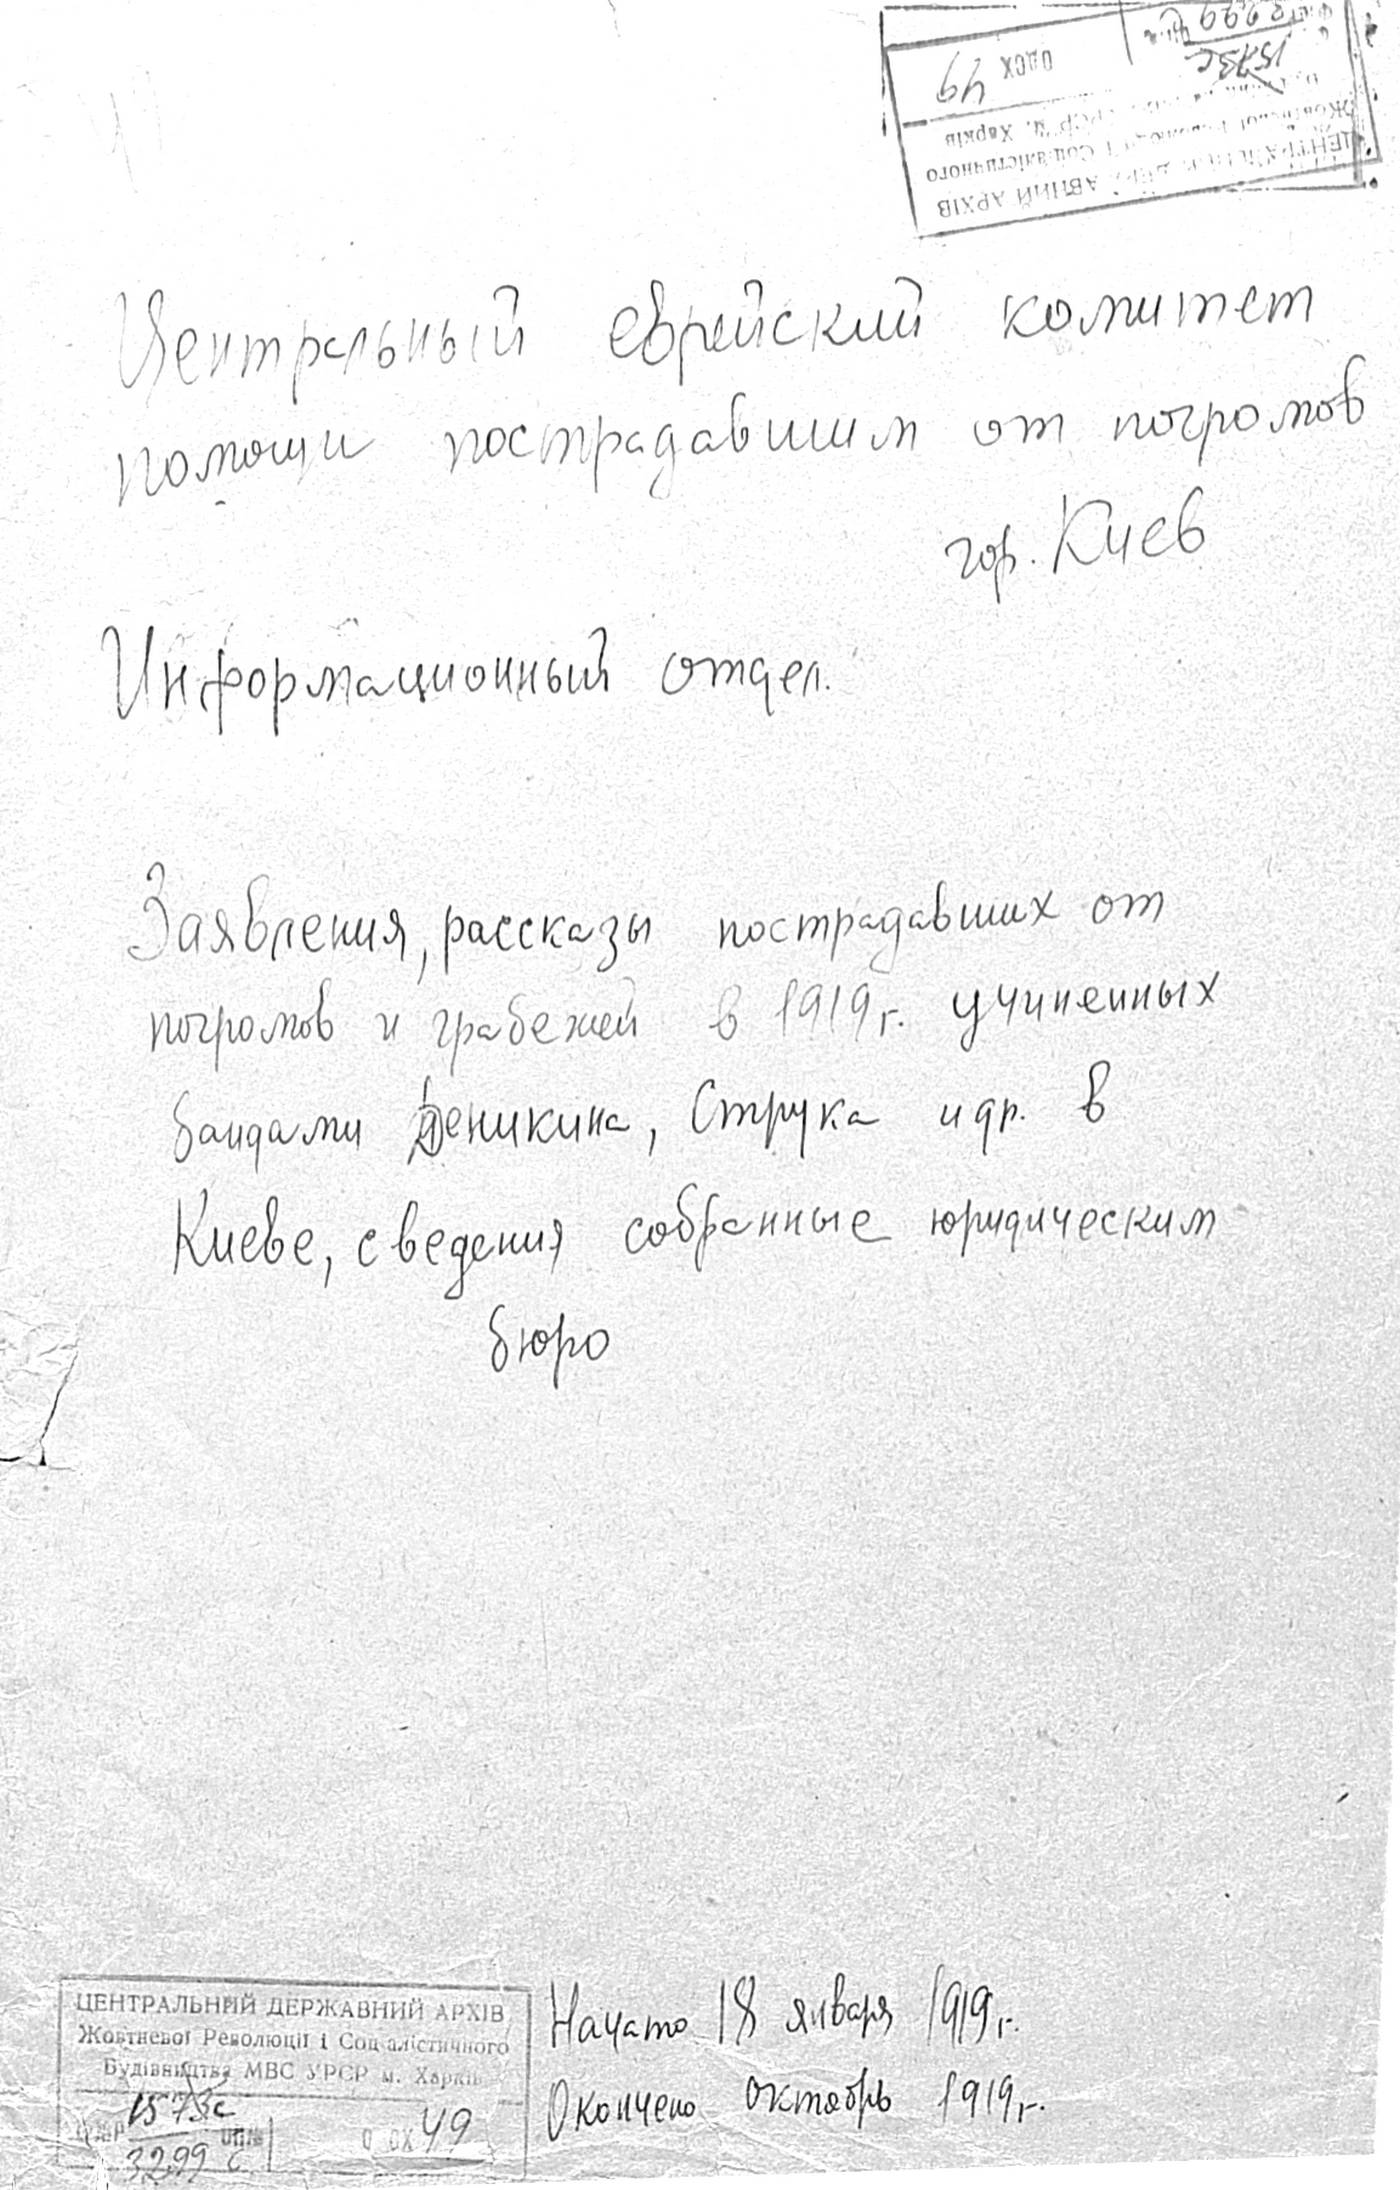 ЦЕНТРАЛЬНИЙ ДЕРЖАВНИЙ АРХІВ
Жовтневої Революції і Соціалістичного
УРСР м. Харків
1573с
3299
ОДСХ 49
Центральный еврейский комитет
помощи пострадавшим от погромов
гор. Киев
Информационный отдел.
Заявления, рассказы пострадавших от
погромов и грабежей в 1919г. учиненных
бандами Деникина, Струка и др. в
Киеве, сведения собранные юридическим
бюро
Начато 18 января 1919г.
Окончено октябрь 1919г.
ЦЕНТРАЛЬНИЙ ДЕРЖАВНИЙ АРХІВ
Жовтневої Революції і Соціалістичного
Будівництва МВС УРСР м. Харків
1573с
3299 с
49